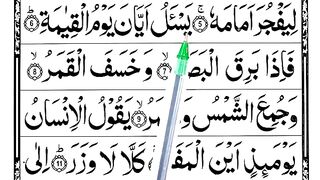 لِيَفْجُرَ اَمَامَهٗ ۚ ﴿5﴾ يَسْـَٔلُ اَيَّانَ يَوْمُ الْقِيٰمَةِ ؕ ﴿6﴾
فَاِذَا بَرِقَ ﴿7﴾ وَ خَسَفَ الْقَمَرُ ﴿8﴾
وَ جُمِعَ الشَّمْسُ ﴿9﴾ يَقُوْلُ الْاِنْسَانُ
يَوْمَئِذٍ اَيْنَ كَلَّا لَا وَزَرَ ؕ ﴿11﴾ اِلٰى